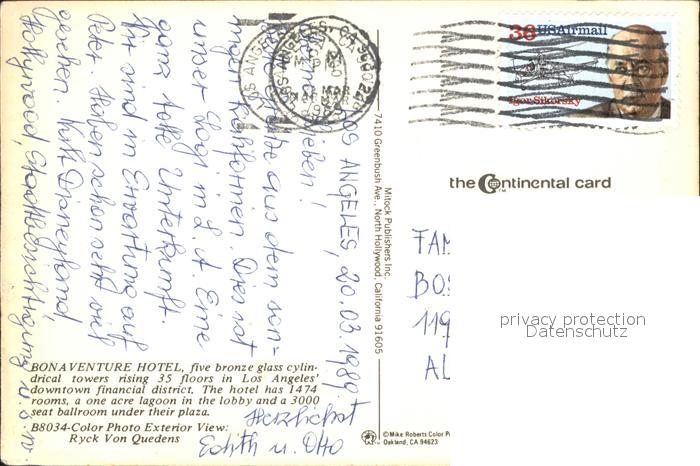 LOS ANGELES, 20.03.1989.
Meine Lieben!
Grüße aus dem son-
nigen Kalifornien. Dies ist
unser Logi in L.A. Eine
ganz tolle Unterkunft.
Wir sind in Erwartung auf
Peter. Haben schon sehr viel
gesehen. Mit Disneyland
Hollywood, Stadtbesichtigung u.s.w.
Herzlichst
Edith u. Otto
BONAVENTURE HOTEL, five bronze glass cylin-
drical towers rising 35 floors in Los Angeles'
downtown financial district. The hotel has 1474
rooms, a one acre lagoon in the lobby and a 3000
seat ballroom under their plaza.
B8034-Color Photo Exterior View:
Ryck Von Quedens
Mitock Publishers Inc.
7410 Greenbush Ave., North Hollywood, California 91605
©Mike Roberts Color P
Oakland, CA 94623
36 USAirmail
Igor Sikorsky
LOS ANGELES, CA
MAR
the Continental card
TM
FAM
BOS
119
AL
privacy protection
Datenschutz